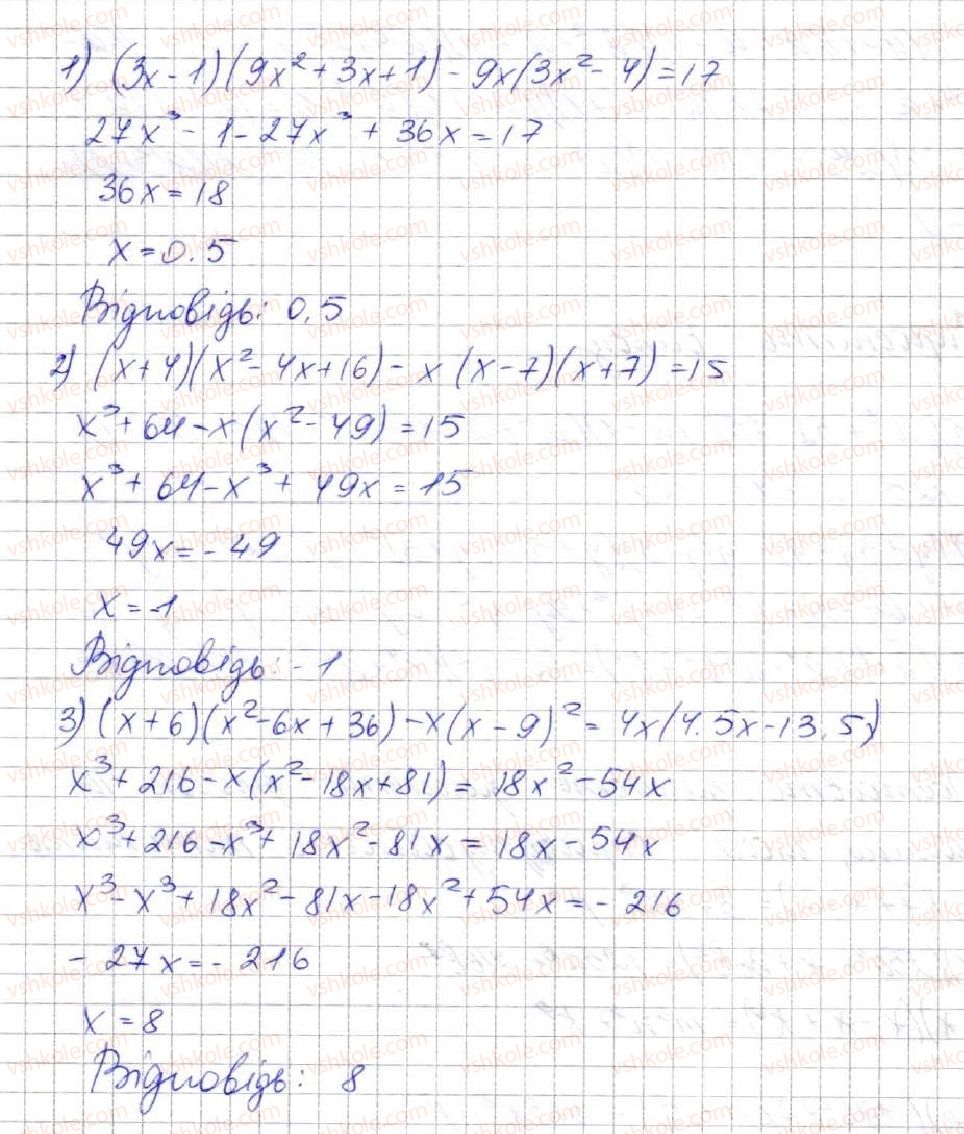 1) (3x - 1)(9x² + 3x + 1) - 9x(3x² - 4) = 17
27x³ - 1 - 27x³ + 36x = 17
36x = 18
x = 0.5
Відповідь: 0,5
2) (x + 4)(x² - 4x + 16) - x(x - 7)(x + 7) = 15
x³ + 64 - x(x² - 49) = 15
x³ + 64 - x³ + 49x = 15
49x = - 49
x = -1
Відповідь: - 1
3) (x + 6)(x² - 6x + 36) - x(x - 9)² = 4x(4.5x - 13,5)
x³ + 216 - x(x² - 18x + 81) = 18x² - 54x
x³ + 216 - x³ + 18x² - 81x = 18x - 54x
x³ - x³ + 18x² - 81x - 18x² + 54x = - 216
- 27x = - 216
x = 8
Відповідь: 8
vshkole.com